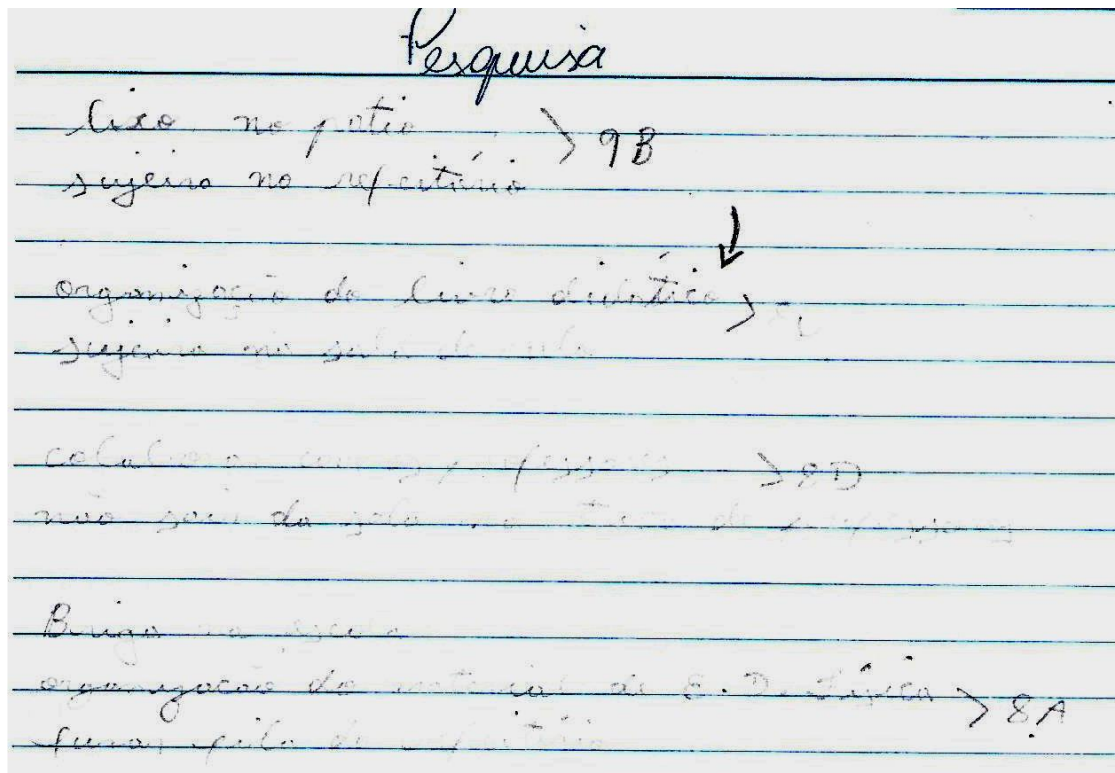 Pesquisa
lixo no patio > 9B
sujeira no refeitório
organização do livro didático >
sujeira na sala de aula
colaborar com os professores > 8D
não sair da sala na troca de professores
Briga na escola
organização do material de E. D. Física > 8A
furar fila do refeitório